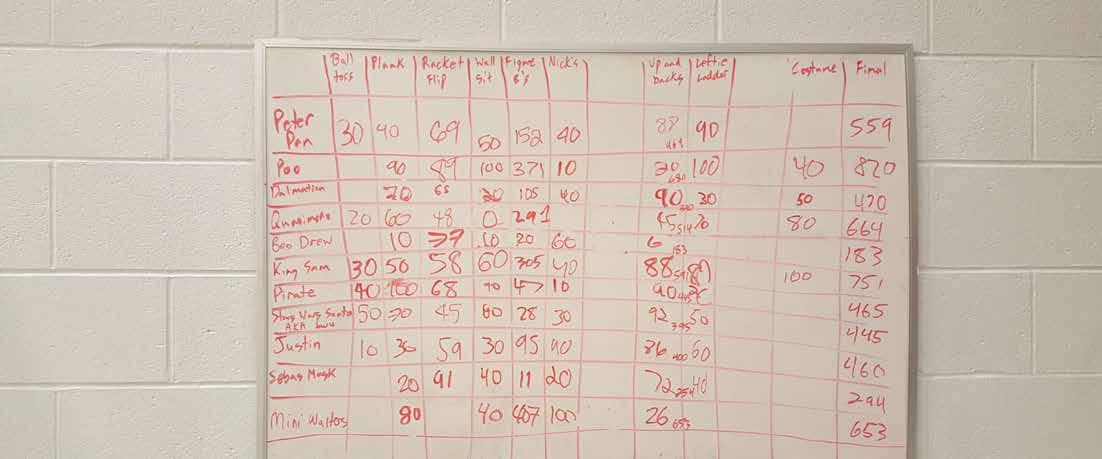 Ball toss Plank Racket Flip Wall Sit Figure 8's Nick's Up and Backs Leftie Ladder Costume Final
Peter Pan 30 40 69 50 152 40 88 469 90 559
Poo 90 89 100 371 10 20 680 100 40 820
Dalmation 70 65 20 105 40 90 30 50 470
Quasimodo 20 60 48 0 291 95 514 70 80 664
Boo Drew 10 77 10 20 60 6 183 183
King Sam 30 50 58 60 305 40 88 591 100 751
Pirate 40 100 68 47 10 90 465
Star Wars Santa 50 70 45 80 28 30 92 395 50 445
AKA
Justin 10 30 59 30 95 90 86 400 60 460
Sebas Mask 20 91 40 11 20 72 254 40 294
Mini Walters 80 40 407 100 26 653 653